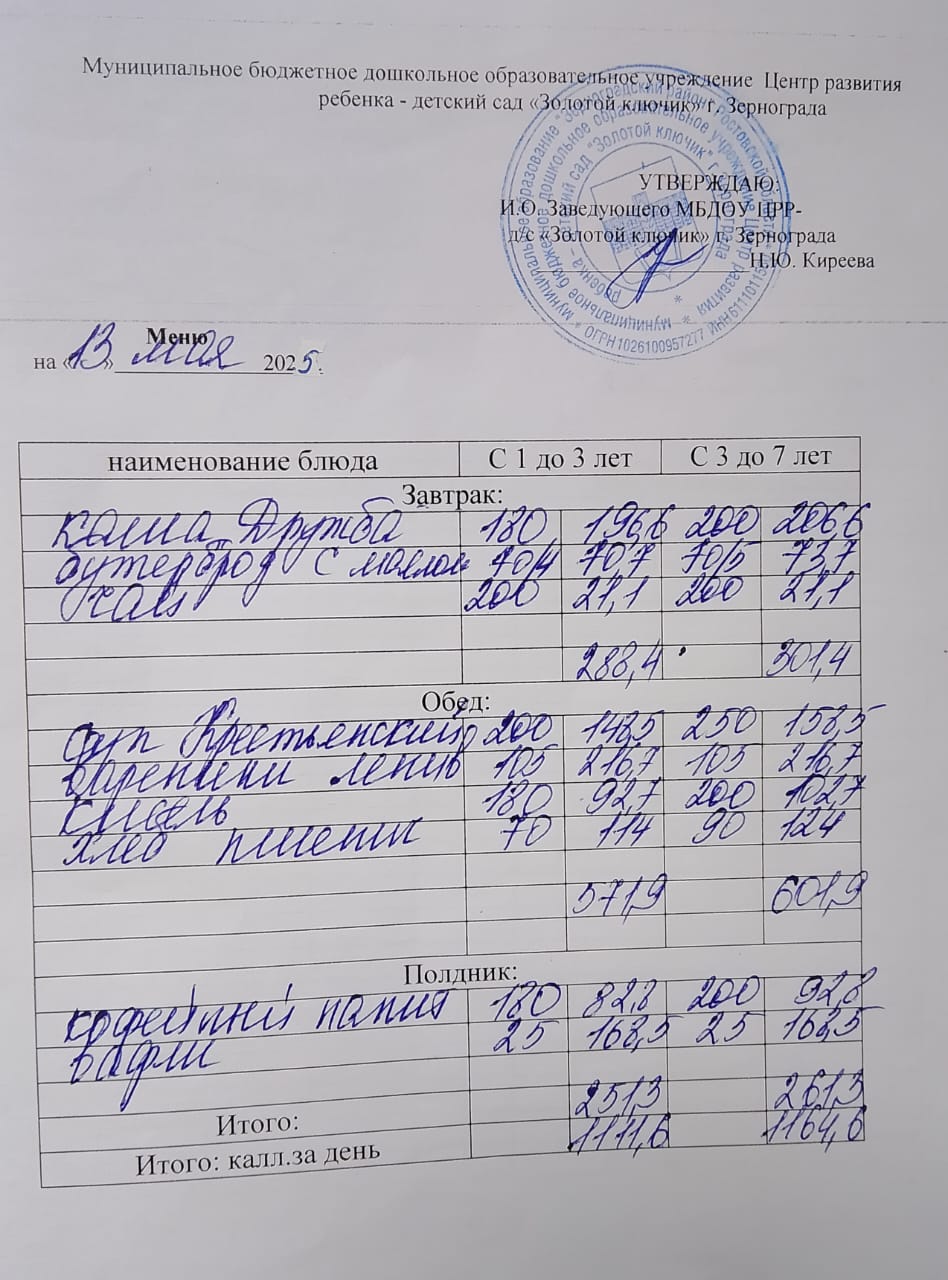 Муниципальное бюджетное дошкольное образовательное учреждение Центр развития
ребенка - детский сад «Золотой ключик» г. Зернограда
УТВЕРЖДАЮ:
И.О. Заведующего МБДОУ ЦРР-
д/с «Золотой ключик» г. Зернограда
Н.Ю. Киреева
ОГРН 1026100957277
Меню
на «13» мая 2025.
наименование блюда С 1 до 3 лет С 3 до 7 лет
Завтрак:
каша Дружба 180 196,6 200 206,6
бутерброд с маслом 40/4 70,7 40/5 73,7
чай 200 21,1 200 21,1
288,4 301,4
Обед:
суп Крестьянский 200 148,5 250 158,5
вареники ленив 105 216,7 105 216,7
кисель 180 92,7 200 102,7
хлеб пшенич 70 114 90 124
571,9 601,9
Полдник:
кофейный напит 180 82,8 200 92,8
вафли 25 168,5 25 168,5
251,3 261,3
Итого: 1111,6 1164,6
Итого: калл.за день